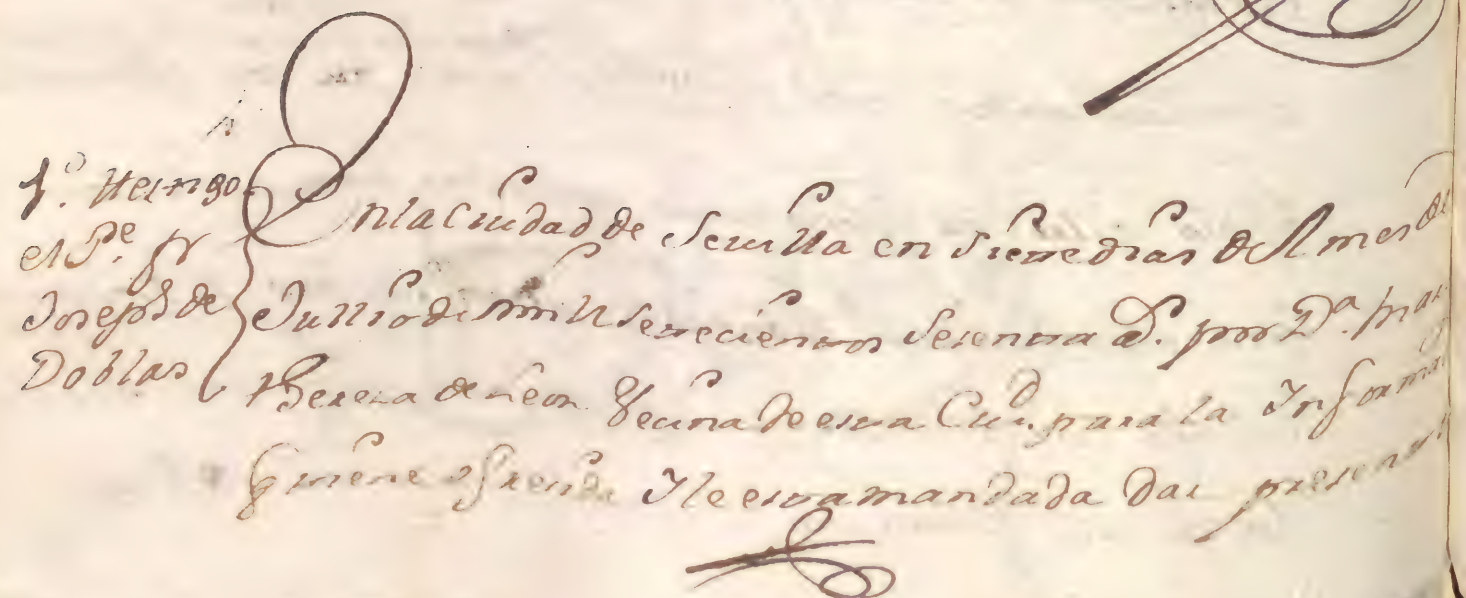 1º. ttestigo
el Pe. fr
Joseph de
Doblas
En la Ciudad de Sevilla en siette dias del mes de
Jullio de mill settecientos settenta a.s por D.ª fran.ca
Thereza de Leon Vecina de esta Ciu.d para la Informaz.on
q tiene ofrecida I le esta mandada dar presento